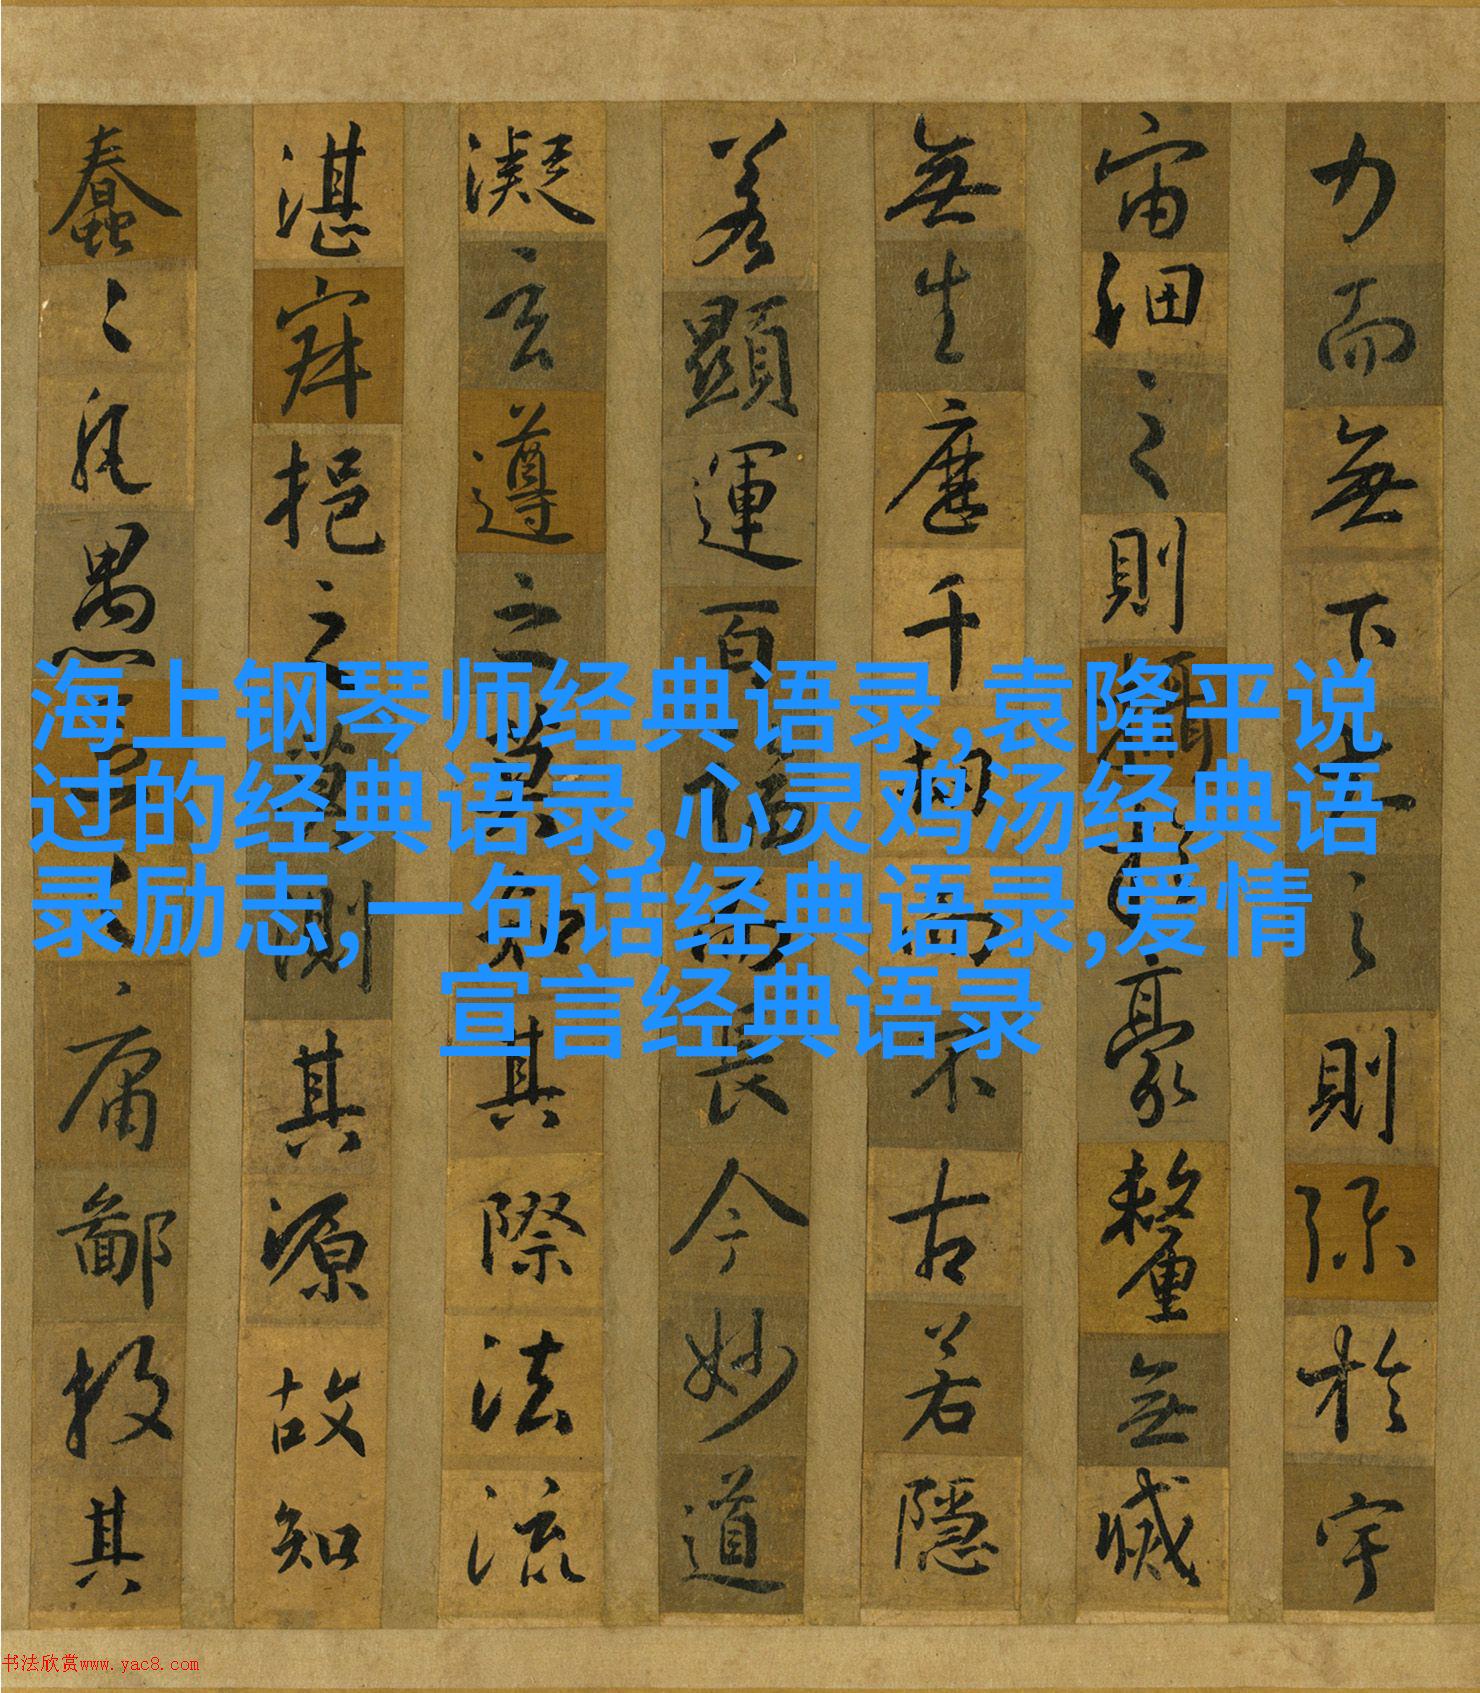 力而無下大之則弥於宇
宙細之則攝於豪釐無滅
無生歷千劫而不古若隱
若顯運百福而長今妙道
凝玄遵之莫知其際法流
湛寂挹之莫測其源故知
蠢〻凡愚區〻庸鄙投其
海上钢琴师经典语录,袁隆平说
过的经典语录,心灵鸡汤经典语
录励志,一句话经典语录,爱情
宣言经典语录
书法欣赏www.yac8.com